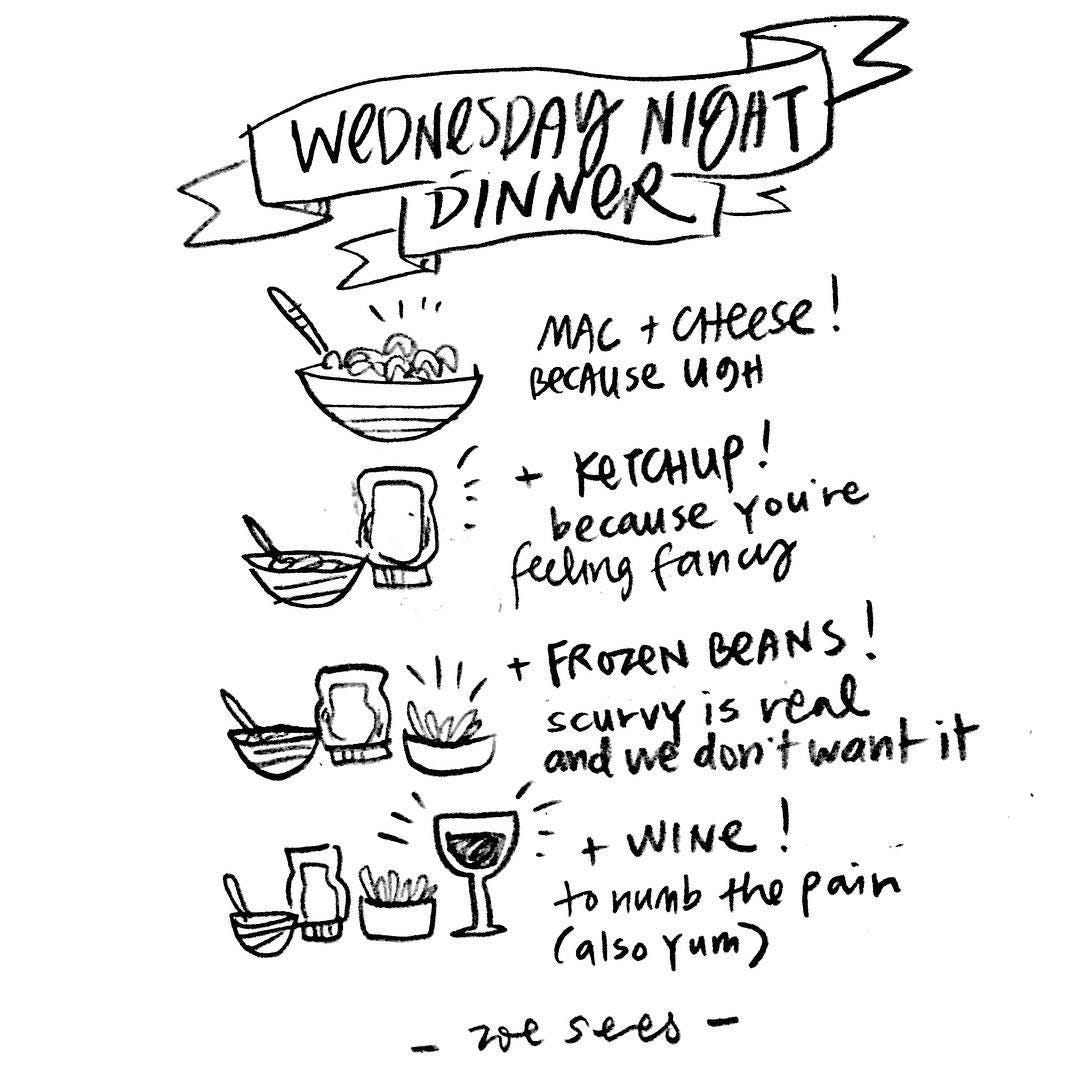 WEDNESDAY NIGHT
DINNER
MAC + CHEESE!
BECAUSE UGH
+ KETCHUP!
because you're
feeling fancy
+ FROZEN BEANS!
scurvy is real
and we don't want it
+ WINE!
to numb the pain
(also yum)
- zoe sees -